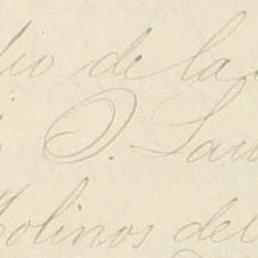 dio de la
D. San
Molinos del